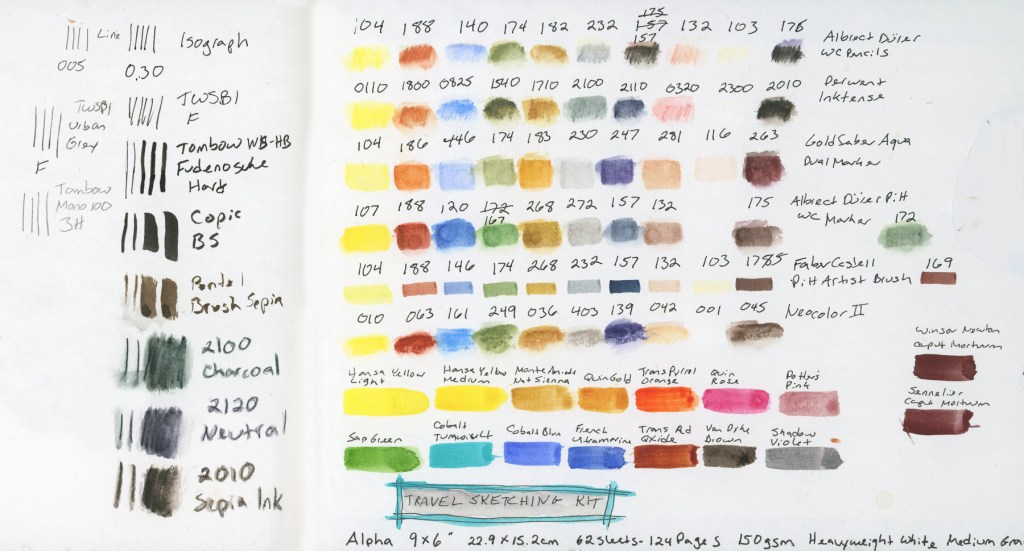 Line
005
Isograph
0.30
TWSBI
Urban
Grey
F
TWSBI
F
Tombow WB-HB
Fudenosuke
Hard
Tombow
Mono 100
3H
Copic
BS
Pentel
Brush Sepia
2100
Charcoal
2120
Neutral
2010
Sepia Ink
104 188 140 174 182 232 175 157 157 132 103 175
Albrect Dürer
WC Pencils
0110 1800 0825 1540 1710 2100 2110 0320 2300 2010
Derwent
Inktense
104 186 446 174 183 230 247 281 116 263
Gold Saber Aqua
Dual Marker
107 188 120 172 167 268 272 157 132 175
Albrect Dürer Pitt
WC Marker
172
104 188 146 174 268 232 157 132 103
Faber Castell
Pitt Artist Brush
169
010 063 161 249 036 403 139 042 001 045
Neocolor II
Winsor Newton
Caput Mortuum
Sennelier
Caput Mortuum
Hansa Yellow
Light
Hansa Yellow
Medium
Monte Amiata
Nat Sienna
Quin Gold
Trans Pyrrol
Orange
Quin
Rose
Potter's
Pink
Sap Green
Cobalt
Turquoise
Cobalt Blue
French
Ultramarine
Trans Rd
Oxide
Van Dyke
Brown
Shadow
Violet
TRAVEL SKETCHING KIT
Alpha 9x6" 22.9 x 15.2cm 62 sheets - 124 Pages 150gsm Heavyweight White Medium